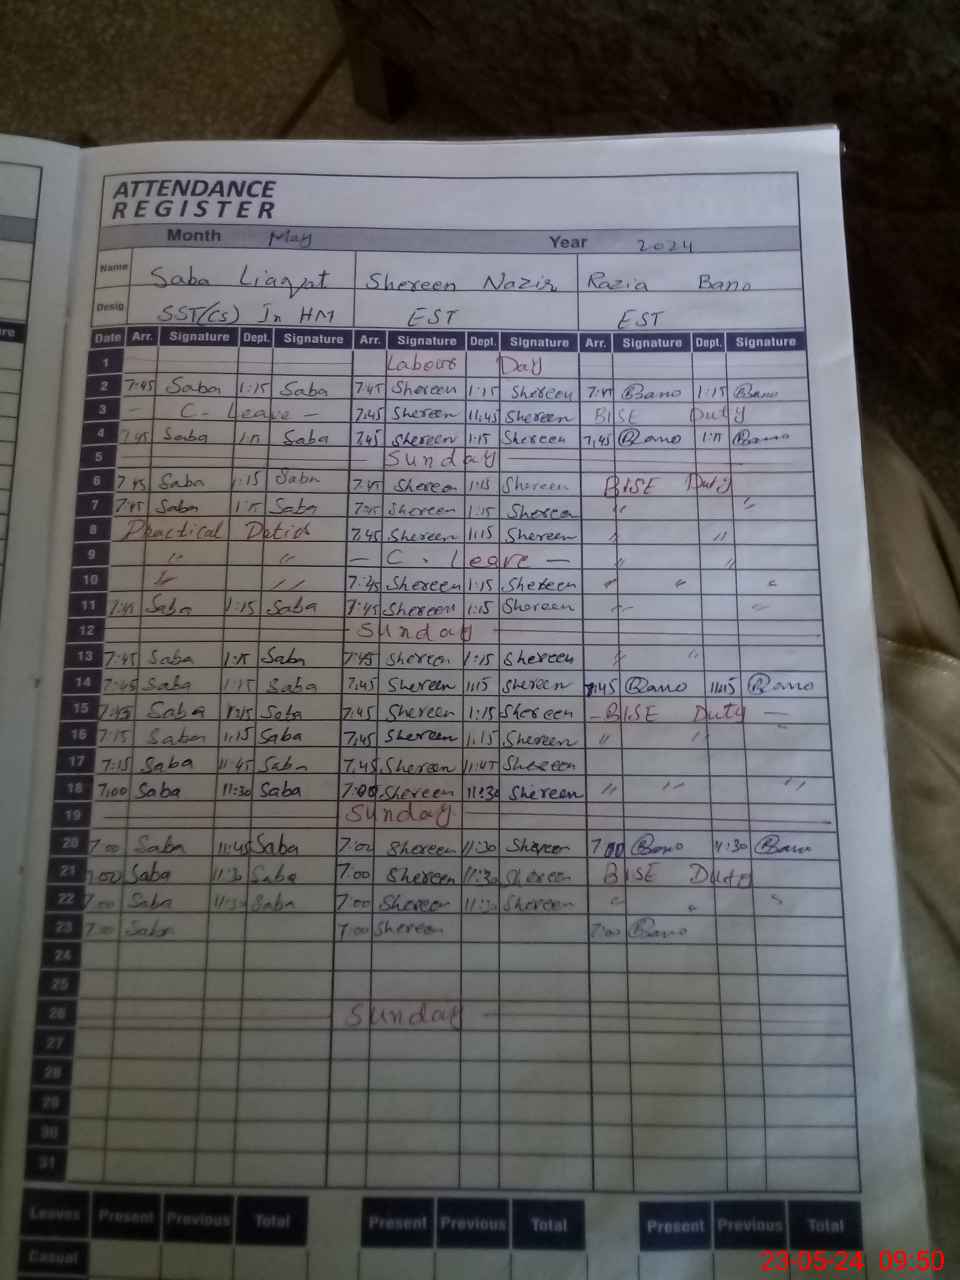 ATTENDANCE
REGISTER
Month May Year 2024
Name Saba Liaqat Shereen Nazir Razia Bano
Desig SST(CS) In HM EST EST
Date Arr. Signature Dept. Signature Arr. Signature Dept. Signature Arr. Signature Dept. Signature
1 Labour Day
2 7:45 Saba 1:15 Saba 7:45 Shereen 1:15 Shereen Bano 1:15 Bano
3 - C. Leave - 7:45 Shereen 11:45 Shereen BISE Duty
4 7:45 Saba Saba 7:45 Shereen 1:15 Shereen 7:45 Bano Bano
5 Sunday
6 7:45 Saba 1:15 Saba 7:45 Shereen 1:15 Shereen BISE Duty
7 7:45 Saba Saba 7:45 Shereen 1:15 Shereen " "
8 Practical 7:45 Shereen 1:15 Shereen " "
9 " " - C. Leave - " "
10 " " 7:45 Shereen 1:15 Shereen " " "
11 7:45 Saba 1:15 Saba 7:45 Shereen 1:15 Shereen " "
12 Sunday
13 7:45 Saba 1:15 Saba 7:45 Shereen 1:15 Shereen " "
14 7:45 Saba 1:15 Saba 7:45 Shereen 1:15 Shereen 7:45 Bano Bano
15 7:45 Saba 1:15 Saba 7:45 Shereen 1:15 Shereen - BISE Duty -
16 7:15 Saba 1:15 Saba 7:45 Shereen 1:15 Shereen " "
17 7:15 Saba 11:45 Saba 7:45 Shereen 11:45 Shereen
18 7:00 Saba 11:30 Saba 7:00 Shereen 11:30 Shereen " " "
19 Sunday
20 7:00 Saba 11:45 Saba 7:00 Shereen 11:30 Shereen 7:00 Bano 11:30 Bano
21 7:00 Saba 11:30 Saba 7:00 Shereen 11:30 Shereen BISE Duty
22 7:00 Saba 11:30 Saba 7:00 Shereen 11:30 Shereen " " "
23 7:00 Saba 7:00 Shereen 7:00 Bano
24
25
26 Sunday
27
28
29
30
31
Leaves Present Previous Total Present Previous Total Present Previous Total
Casual
23-05-24 09:50